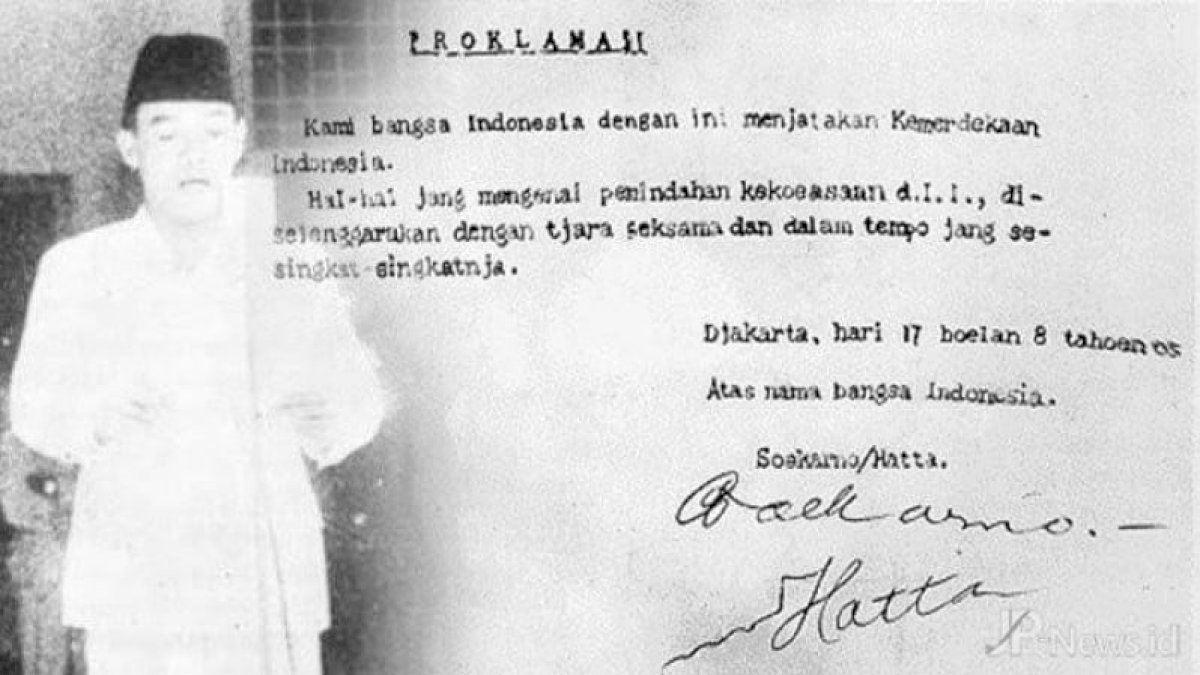 PROKLAMASI
Kami bangsa Indonesia dengan ini menjatakan Kemerdekaan
Indonesia.
Hal-hal jang mengenai pemindahan kekoeasaan d.l.l., di-
selenggarakan dengan tjara seksama dan dalam tempo jang se-
singkat-singkatnja.
Djakarta, hari 17 boelan 8 tahoen 05
Atas nama bangsa Indonesia.
Soekarno/Hatta.
Soekarno.-
Hatta
JPNews.id